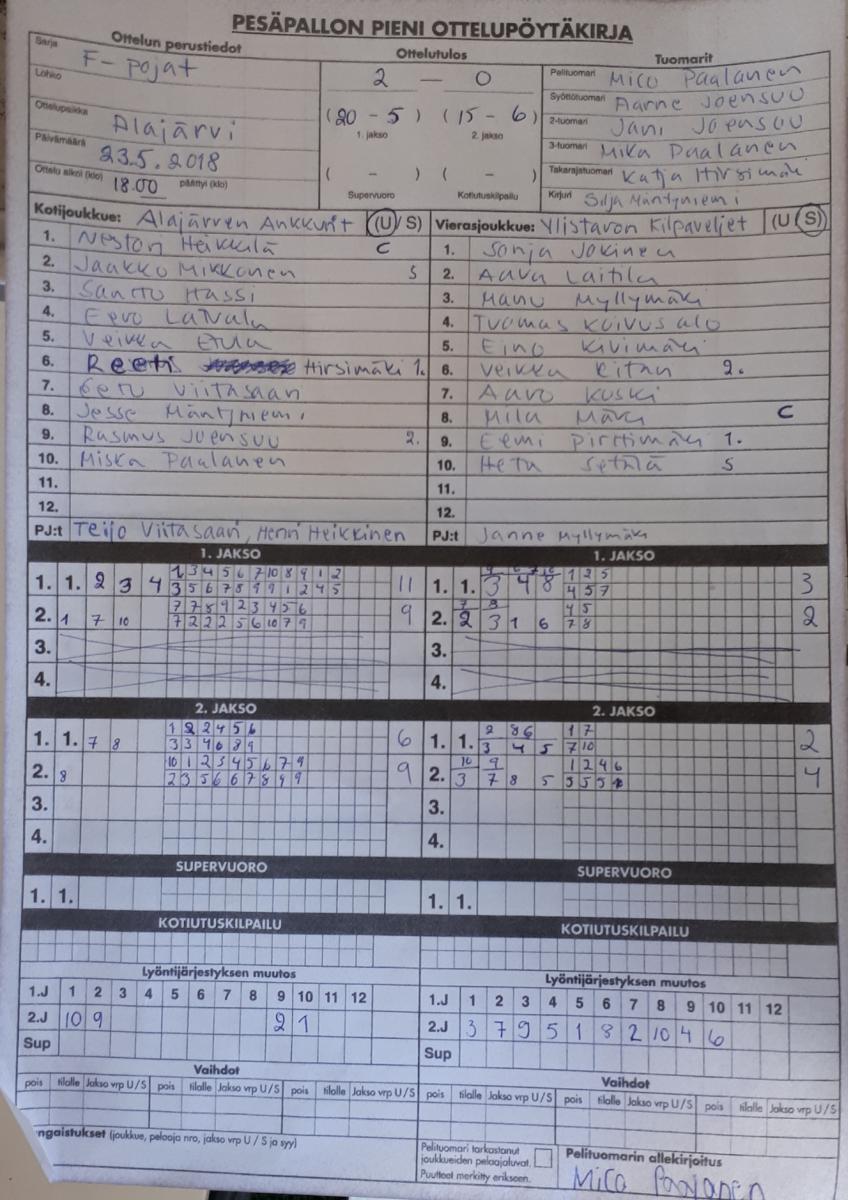 PESÄPALLON PIENI OTTELUPÖYTÄKIRJA
Ottelun perustiedot
Sarja F-pojat
Lohko
Ottelupaikka Alajärvi
Päivämäärä 23.5.2018
Ottelu alkoi (klo) 18.00 päättyi (klo)
Ottelutulos
2 — 0
(20 - 5) (15 - 6)
1. jakso 2. jakso
( - ) ( - )
Supervuoro Kotiutuskilpailu
Tuomarit
Pelituomari Mico Paalanen
Syöttötuomari Aarne Joensuu
2-tuomari Jani Joensuu
3-tuomari Mika Paalanen
Takarajatuomari Katja Hirsimäki
Kirjuri Silja Mäntyniemi
Kotijoukkue: Alajärven Ankkurit (U/S)
1. Nestori Heikkilä C
2. Jaakko Mikkonen S
3. Santtu Hassi
4. Eero Latvala
5. Veikka
6. Reeti Hirsimäki 1.
7. Eetu Viitasaari
8. Jesse Mäntyniemi
9. Rasmus Joensuu 2.
10. Miska Paalanen
11.
12.
PJ:t Teijo Viitasaari, Henri Heikkinen
Vierasjoukkue: Ylistaron Kilpaveljet (U/S)
1. Sonja Jokinen
2. Aava Laitila
3. Manu Myllymäki
4. Tuomas Koivusalo
5. Eino Kivimäki
6. Veikka 2.
7. Aaro Koski
8. Mila C
9. Eemi Pirttimäki 1.
10. Hetu Setälä S
11.
12.
PJ:t Janne Myllymäki
1. JAKSO
1. 1. 2 3 4
1 3 4 5 6 7 10 8 9 1 2
3 5 6 7 8 9 9 1 2 4 5
11
2. 1 7 10
7 7 8 9 2 3 4 5 6
7 2 2 2 5 6 10 7 9
9
3.
4.
1. JAKSO
1. 1. 3 4 8
1 2 5
4 5 7
3
2. 2 3 1 6
7 8
4 5
7 8
2
3.
4.
2. JAKSO
1. 1. 7 8
1 2 2 4 5 6
3 3 4 6 8 9
6
2. 8
10 1 2 3 4 5 6 7 9
2 3 5 6 6 7 8 9 9
9
3.
4.
2. JAKSO
1. 1. 3 4 5
2 8 6
1 7
7 10
2
2. 3 7 8 5
10 9
1 2 4 6
5 5 5
4
3.
4.
SUPERVUORO
1. 1.
SUPERVUORO
1. 1.
KOTIUTUSKILPAILU
KOTIUTUSKILPAILU
Lyöntijärjestyksen muutos
1.J 1 2 3 4 5 6 7 8 9 10 11 12
2.J 10 9 2 1
Sup
Lyöntijärjestyksen muutos
1.J 1 2 3 4 5 6 7 8 9 10 11 12
2.J 3 7 9 5 1 8 2 10 4 6
Sup
Vaihdot
pois tilalle Jakso vrp U/S pois tilalle Jakso vrp U/S pois tilalle Jakso vrp U/S
Vaihdot
pois tilalle Jakso vrp U/S pois tilalle Jakso vrp U/S pois tilalle Jakso vrp U/S
ngaistukset (joukkue, pelaaja nro, jakso vrp U / S ja syy)
Pelituomari tarkastanut
joukkueiden pelaajaluvat.
Puutteet merkitty erikseen.
Pelituomarin allekirjoitus
Mico Paalanen